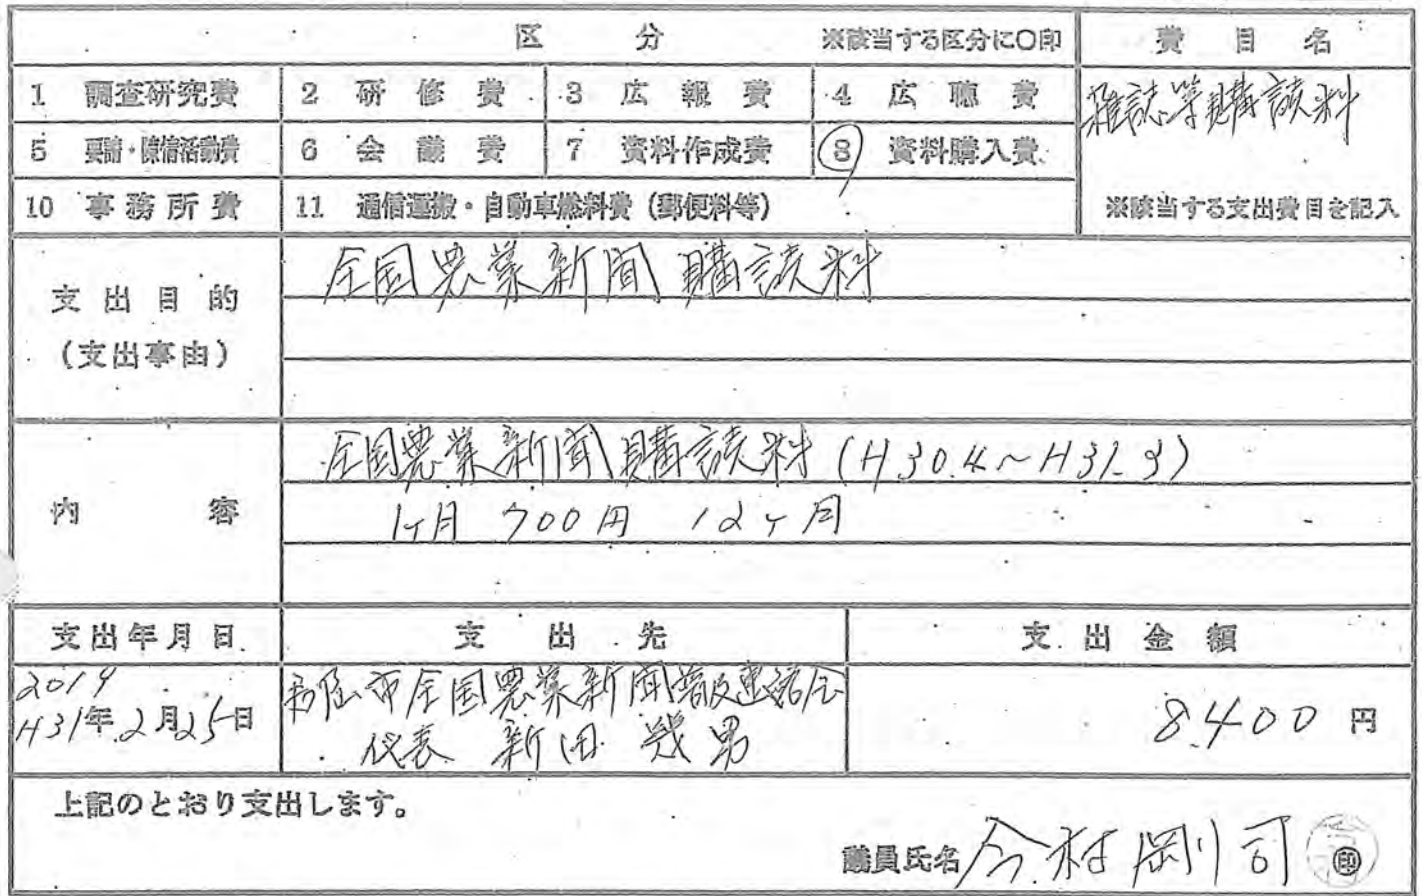 区 分 ※該当する区分に○印 費 目 名
1 調査研究費 2 研 修 費 3 広 報 費 4 広 聴 費 雑誌等購読料
5 要請・陳情活動費 6 会 議 費 7 資料作成費 8 資料購入費
10 事務所費 11 通信運搬・自動車燃料費(郵便料等) ※該当する支出費目を記入
支出目的
(支出事由)
全国農業新聞購読料
内 容
全国農業新聞購読料(H30.4~H31.3)
1ヶ月 700円 12ヶ月
支出年月日 支 出 先 支 出 金 額
2019
H31年2月25日
市全国農業新聞普及連絡会
代表 新田 男
8,400円
上記のとおり支出します。
議員氏名 今村剛司 ㊞